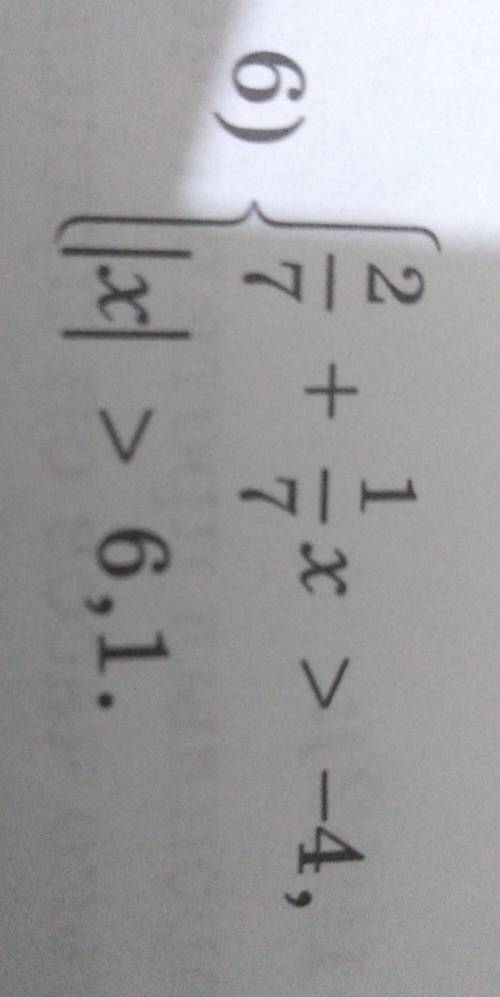 6) { 2/7 + 1/7 x > −4,
|x| > 6,1.